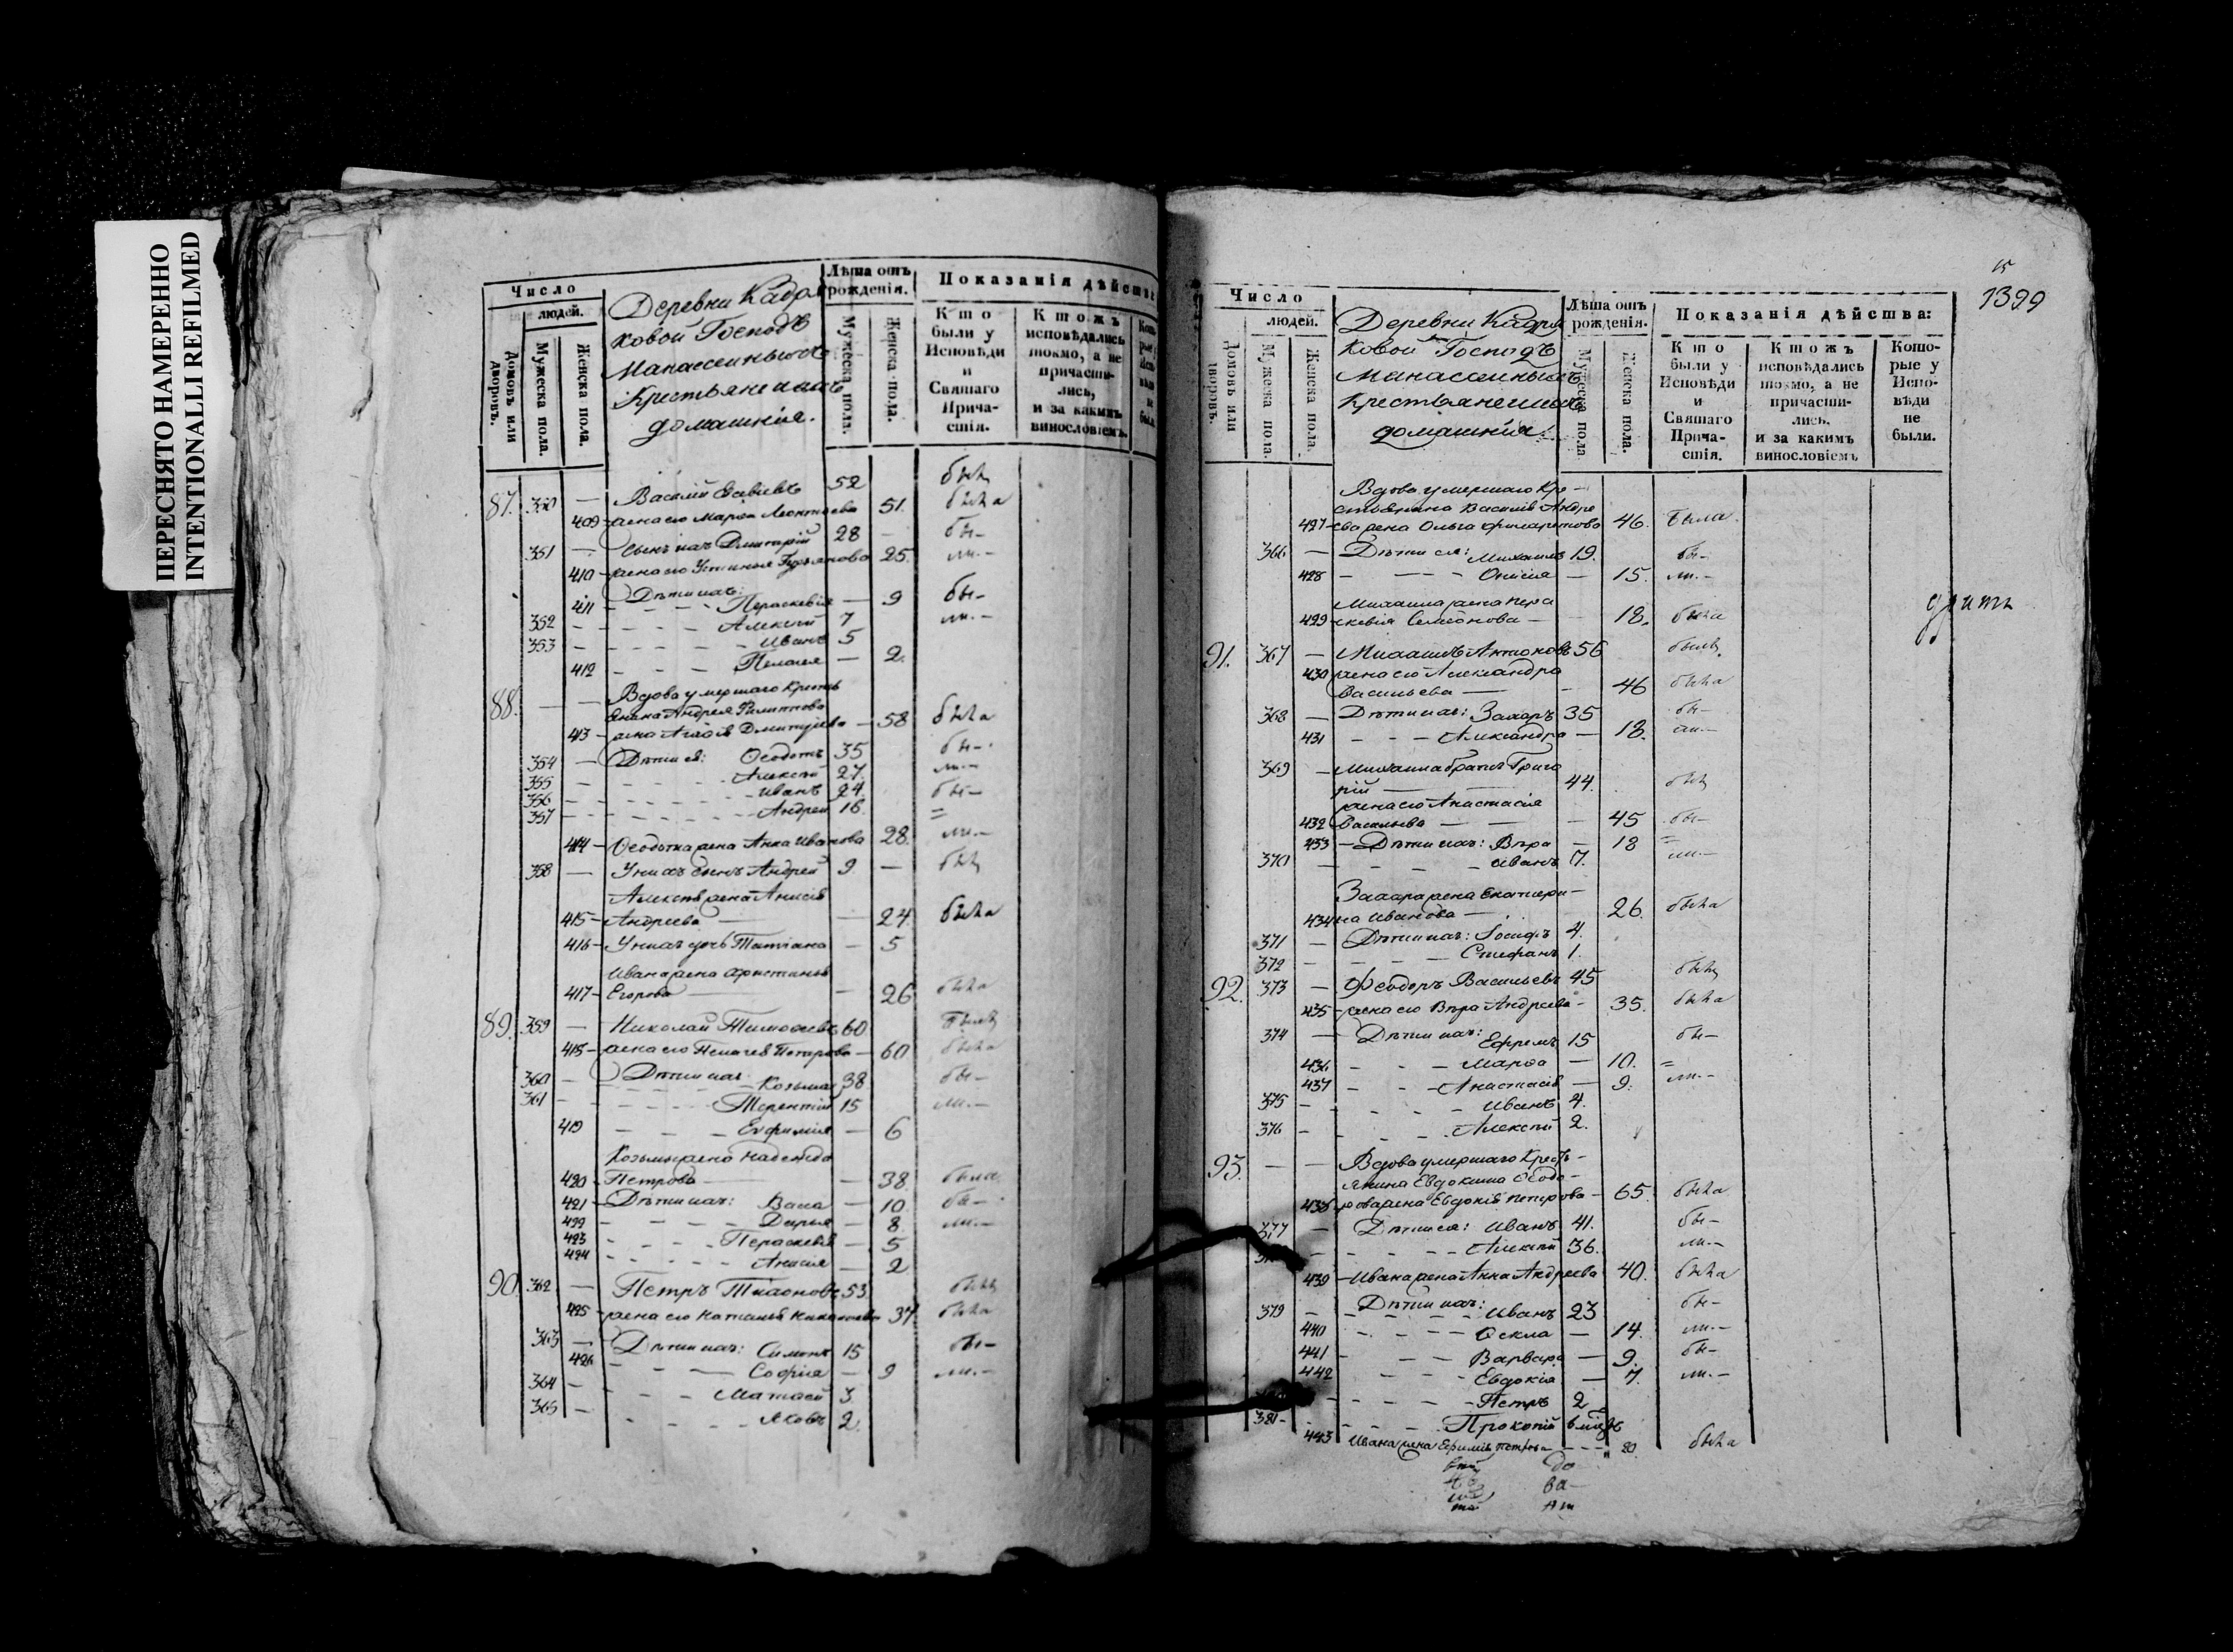 ПЕРЕСНЯТО НАМЕРЕННО
INTENTIONALLI REFILMED
Число
людей.
Домовъ или дворовъ.
Мужеска пола.
Женска пола.
Деревни Кадря
ковой Господъ
Манассеиныхъ
Крестьяне и ихъ
домашнія.
Лѣта отъ рожденія.
Мужеска пола.
Женска пола.
Показанія дѣйств
Кто были у Исповѣди и Святаго Причастія.
Ктожъ исповѣдались токмо, а не причастились, и за какимъ винословіемъ.
87. 350 — Василій 52 былъ
409 жена его Марѳа Леонтиева 51. была
351 — Сынъ ихъ Димитрій 28 — бы-
410 жена его Устинья 25. ли.-
Дѣти ихъ:
411 Параскевія — 9 бы-
352 Алексѣй 7 ли.-
353 Иванъ 5
412 Пелагея — 2.
88. — — Вдова умершаго Кресть
янина Андрея Филиппова
413 жена Дмитріева — 58 была
354 — Дѣти ея: Ѳедотъ 35 бы-
355 Алексѣй 27. ли-
356 Иванъ 24. бы-
357 Андрей 16. =
414 Ѳедота жена Анна Иванова 28. ли.-
358 — У нихъ сынъ Андрей 9. — былъ
Алексѣя жена Анисія
415 Андреева — 24. была
416 У нихъ дочь Татіана — 5
Ивана жена Христинья
417 Егорова — 26 была
89. 359 — Николай Тимоѳеевъ 60 былъ
418 жена его Пелагея Петрова — 60 была
360 — Дѣти ихъ: Козьма 38. бы-
361 Терентій 15 ли.-
419 Евфимія — 6
Козьмы жена Надежда
420 Петрова — 38 была
421 Дѣти ихъ: Васса — 10 бы-
422 Дарья — 8. ли.-
423 Параскевія — 5
424 Анисія — 2
90. 362 — Петръ Тихоновъ 53. былъ
425 жена его Наталья 37. была
363 — Дѣти ихъ: Симонъ 15 бы-
426 Софія — 9 ли.-
364 Матвей 3.
365 Яковъ 2.
15
1399
Число
людей.
Домовъ или дворовъ.
Мужеска пола.
Женска пола.
Деревни Кадря
ковой Господъ
Манассеиныхъ
Крестьяне и ихъ
домашнія.
Лѣта отъ рожденія.
Мужеска пола
Женска пола.
Показанія дѣйства:
Кто были у Исповѣди и Святаго Причастія.
Ктожъ исповѣдались токмо, а не причастились. и за какимъ винословіемъ
Которые у Исповѣди не были.
Вдова умершаго Кре-
стьянина Василія Андре
427 ева жена Ольга Филаретова 46. была.
366 — Дѣти ея: Михаилъ 19. бы-
428 Онисія — 15. ли.-
Михаила жена Пара
429 скевія Семенова — 18. была
91. 367 — Михаилъ Антоновъ 56 былъ.
430 жена его Александра
Васильева — 46 была
368 — Дѣти ихъ: Захаръ 35 бы-
431 Александра — 18. ли.-
369 — Михаила братъ Григо
рій 44. былъ
жена его Анастасія
432 Васильева — 45 бы-
433 — Дѣти ихъ: Вѣра — 18 =
370 Иванъ 7. ли.-
Захара жена Екатери-
434 на Иванова — 26. была
371 — Дѣти ихъ: Іосифъ 4.
372 Стефанъ 1.
92. 373 — Ѳеодоръ Васильевъ 45 былъ
435 жена его Вѣра Андреева - 35. была
374 — Дѣти ихъ: Ефремъ 15 бы-
436 Марѳа — 10. =
437 Анастасія — 9. ли.-
375 Иванъ 4.
376 Алексѣй 2.
93. — — Вдова умершаго Кресть-
янина Евдокима Ѳедо-
438 рова жена Евдокія Петрова - 65. была
377 — Дѣти ея: Иванъ 41. бы-
Алексѣй 36. ли.-
439 Ивана жена Анна Андреева 40. была
379 Дѣти ихъ: Иванъ 23 бы-
440 Ѳекла — 14. ли.-
441 Варвара — 9. бы-
442 Евдокія — 7. ли.-
Петръ 2
381 Прокопій
443 Ивана жена Ефимія Петрова 20. была